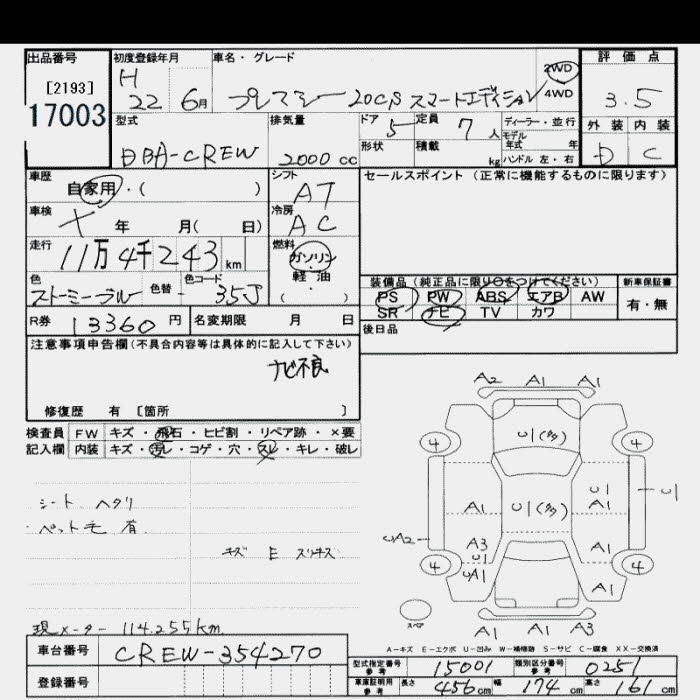 出品番号
[2193]
17003
初度登録年月
H
22 6月
車名・グレード
プレマシー 20CS スマートエディション
2WD
4WD
評価点
3.5
外装 内装
D C
型式
DBA-CREW
排気量
2000 cc
ドア 5
形状
定員 7 人
積載 kg
ディーラー・並行
モデル
年式 年
ハンドル 左・右
車歴
自家用・( )
シフト
AT
車検
年 月( 日)
冷房
AC
走行
11万4千243 km
燃料
ガソリン
・
軽・油
( )
色
ストーミーブルー
色替
色コード
35J
R券 13360 円
名変期限 月 日
セールスポイント(正常に機能するものに限ります)
装備品(純正品に限り○をつけてください)
PS PW ABS エアB AW
SR ナビ TV カワ
新車保証書
有・無
後日品
注意事項申告欄(不具合内容等は具体的に記入して下さい)
ナビ不良
修復歴 有 [箇所 ]
検査員
記入欄
FW キズ・飛石・ヒビ割・リペア跡・×要
内装 キズ・汚レ・コゲ・穴・スレ・キレ・破レ
シート ヘタリ
ペット毛 有
キズ E スリキズ
現メーター 114.255km
A2 A1 A1
4 U1(多) 4
A1 U1(多) U1 A1 U1
UA2 A3 U1 A1
4 UA1 A1 4
スペア
A1 A1 A3
A-キズ E-エクボ U-凹み W-補修跡 S-サビ C-腐食 XX-交換済
車台番号 CREW-354270
登録番号
型式指定番号
参考
15001
類別区分番号
参考
0251
車庫証明用
参考
長さ 456 cm 幅 174 cm 高さ 161 cm